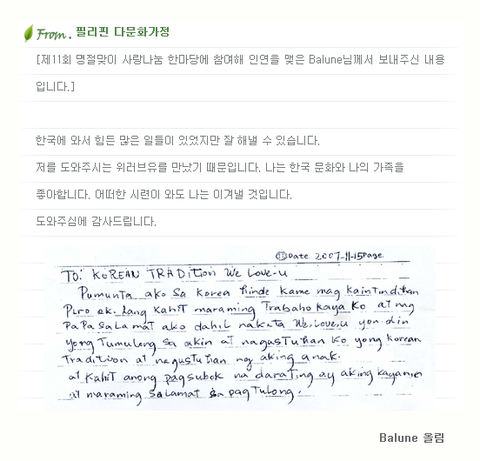 From. 필리핀 다문화가정
[제11회 명절맞이 사랑나눔 한마당에 참여해 인연을 맺은 Balune님께서 보내주신 내용
입니다.]
한국에 와서 힘든 많은 일들이 있었지만 잘 해낼 수 있습니다.
저를 도와주시는 위러브유를 만났기 때문입니다. 나는 한국 문화와 나의 가족을
좋아합니다. 어떠한 시련이 와도 나는 이겨낼 것입니다.
도와주심에 감사드립니다.
Date 2007-11-15 Page
To: KOREAN TRADition We Love-u
Pumunta ako sa Korea hinde kame mag kaintindihan
Pero ok lang kahit maraming Trabaho kaya ko at nag
PaPasalamat ako dahil nakita We.Love.u yon din
yong Tumulong sa akin at nagustuhan ko yong korean
Tradition at nagustuhan ng aking anak.
at kahit anong pagsubok na darating ay aking kagamin
at maraming salamat sa pag tulong.
Balune 올림